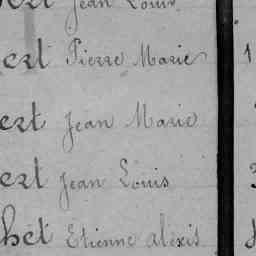 Jean Louis
ert Pierre Marie 1
ert Jean Marie
ert Jean Louis 3
het Etienne alexis